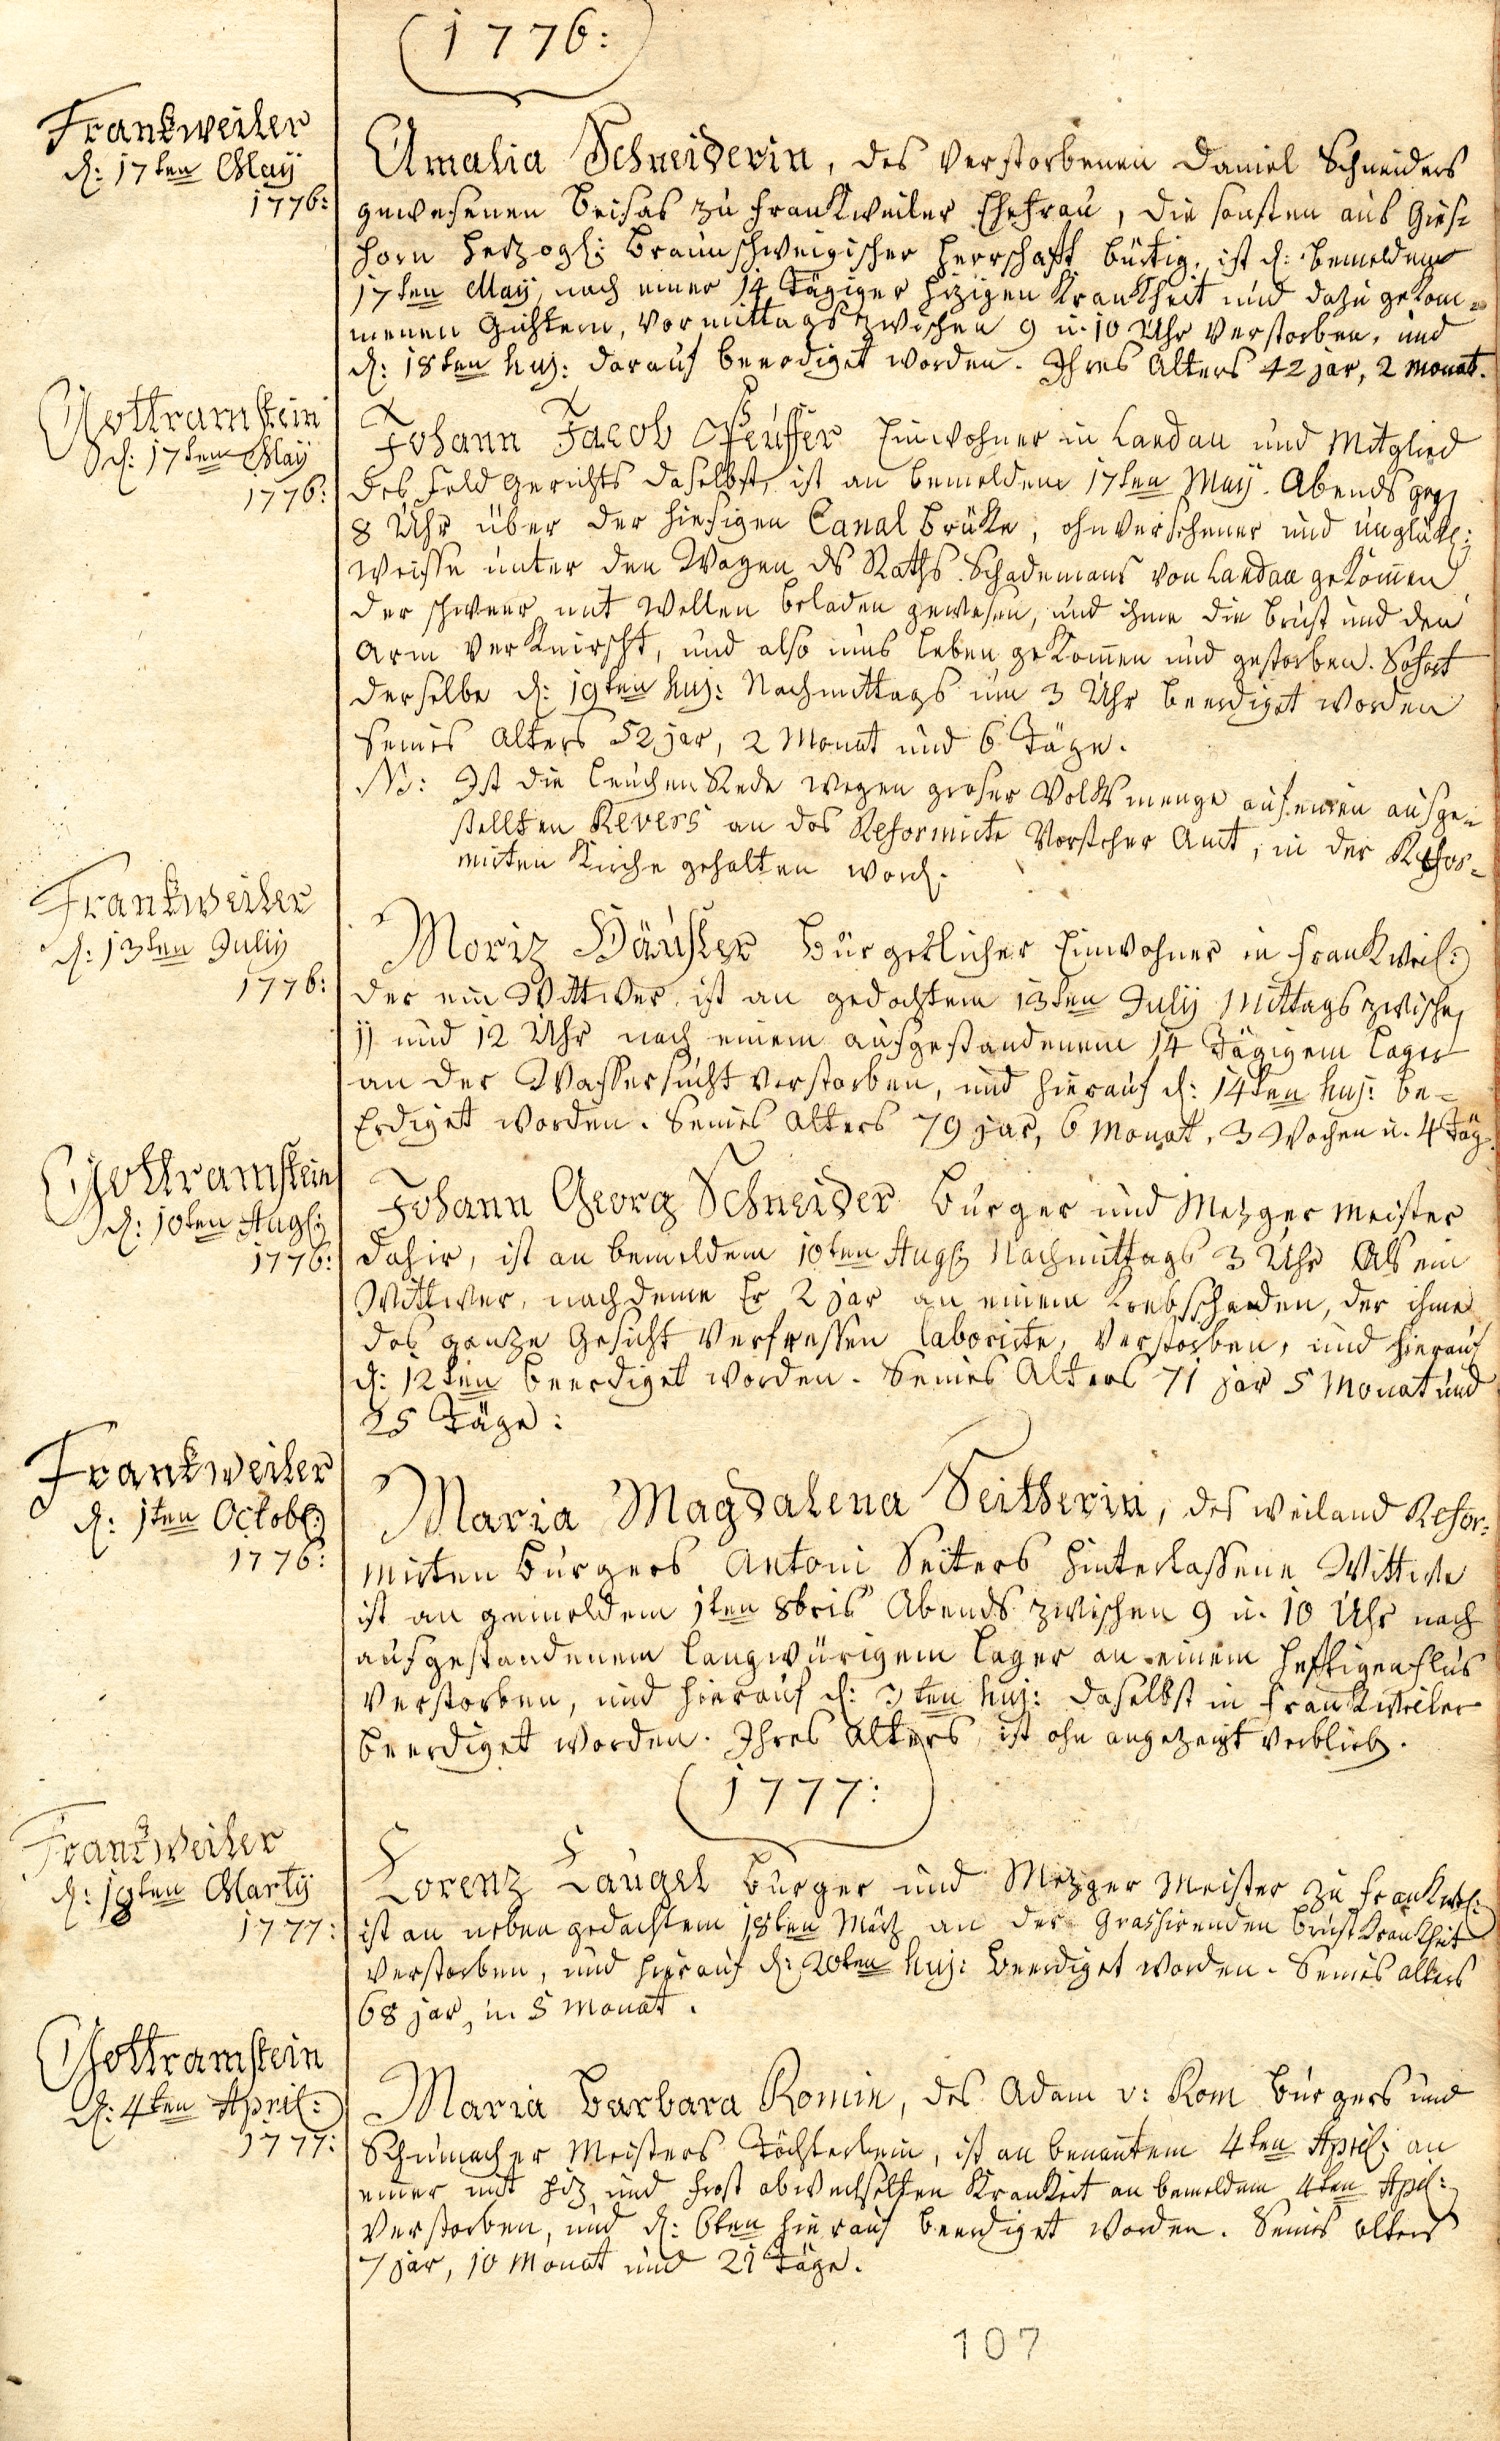 1776:
Frankweiler
d: 17ten May
1776:
Amalia Schneiderin, des verstorbenen Daniel Schneiders
gewesenen Beisas zu Frankweiler Ehefrau, die sonsten aus Gief-
horn Herzogl: Braunschweigischer Herrschaft bürtig, ist d: bemeldem
17ten May, nach einer 14 Tägiger hizigen Krankheit und dazu gekom-
menen Gichtern, Vormittags zwischen 9 u. 10 Uhr verstorben, und
d: 18ten huj: darauf beerdiget worden. Ihres Alters 42 jar, 2 Monat.
Gottramstein
d: 17ten May
1776:
Johann Jacob Pfeuffer Einwohner in Landau und Mitglied
des Feld Gerichts daselbst, ist an bemeldem 17ten May. Abends geg
8 Uhr über der hiesigen Canal Brüke, ohnversehener und unglükl:
Weisse unter den Wagen ds Raths. Schademans von Landau gekommen
der schweer mit Wellen beladen gewesen, und ihme die Brust und den
Arm verknirscht, und also ums Leben gekommen und gestorben. Sofort
derselbe d: 19ten huj: Nachmittags um 3 Uhr beerdiget worden
seines Alters 52 jar, 2 Monat und 6 Täge.
NB: Ist die Leuchen Rede wegen groser Volksmenge auf einen ausge-
stellten Revers an das Reformirte Vorsteher Amt, in der Refor-
mirten Kirche gehalten word.
Frankweiler
d: 13ten July
1776:
Moriz Häusler Bürgerlicher Einwohner in Frankweil:
der ein Wittwer, ist an gedachtem 13ten July Mittags zwische
11 und 12 Uhr nach einem ausgestandenem 14 Tägigem Lager
an der Wassersucht verstorben, und hierauf d: 14ten huj: be-
Erdiget worden. Seines Alters 79 jar, 6 Monat, 3 Wochen u. 4 Täg.
Gottramstein
d: 10ten Aug:
1776:
Johann Georg Schneider Burger und Metzger meister
dahir, ist an bemeldem 10ten Aug: Nachmittags 3 Uhr Als ein
Wittwer, nachdeme Er 2 jar an einem Krebsschaden, der ihme
das ganze Gesicht verfressen laborirte, verstorben, und hierauf
d: 12ten beerdiget worden. Seines Alters 71 jar 5 Monat und
25 Täge:
Frankweiler
d: 1ten Octobr:
1776:
Maria Magdalena Seitherin, des weiland Refor-
mirten Burgers Antoni Seiters hinterlassene Wittwe
ist an gemeldem 1ten 8bris Abends zwischen 9 u. 10 Uhr nach
aufgestandenem langwürigem Lager an einem heftigen Flus
verstorben, und hierauf d: 3ten huj: daselbst in Frankweiler
beerdiget worden. Ihres Alters, ist ohn angezeigt verblieb.
1777:
Frankweiler
d: 18ten Marty
1777:
Lorenz Laugel Burger und Mezger Meister zu Frankwl:
ist an neben gedachtem 18ten Märtz an der Grassirenden Brust Krankheit
verstorben, und hierauf d: 20ten huj: beerdiget worden. Seines alters
68 jar, u. 5 Monat.
Gottramstein
d: 4ten April:
1777:
Maria Barbara Romin, des Adam v: Rom Burgers und
Schumacher Meisters Töchterlein, ist an benantem 4ten April: an
einer mit Hiz und Frost abwechselten Krankeit an bemeldem 4ten Apil:
verstorben, und d: 6ten hierauf beerdiget worden. Seines alters
7 jar, 10 Monat und 21 Täge.
107